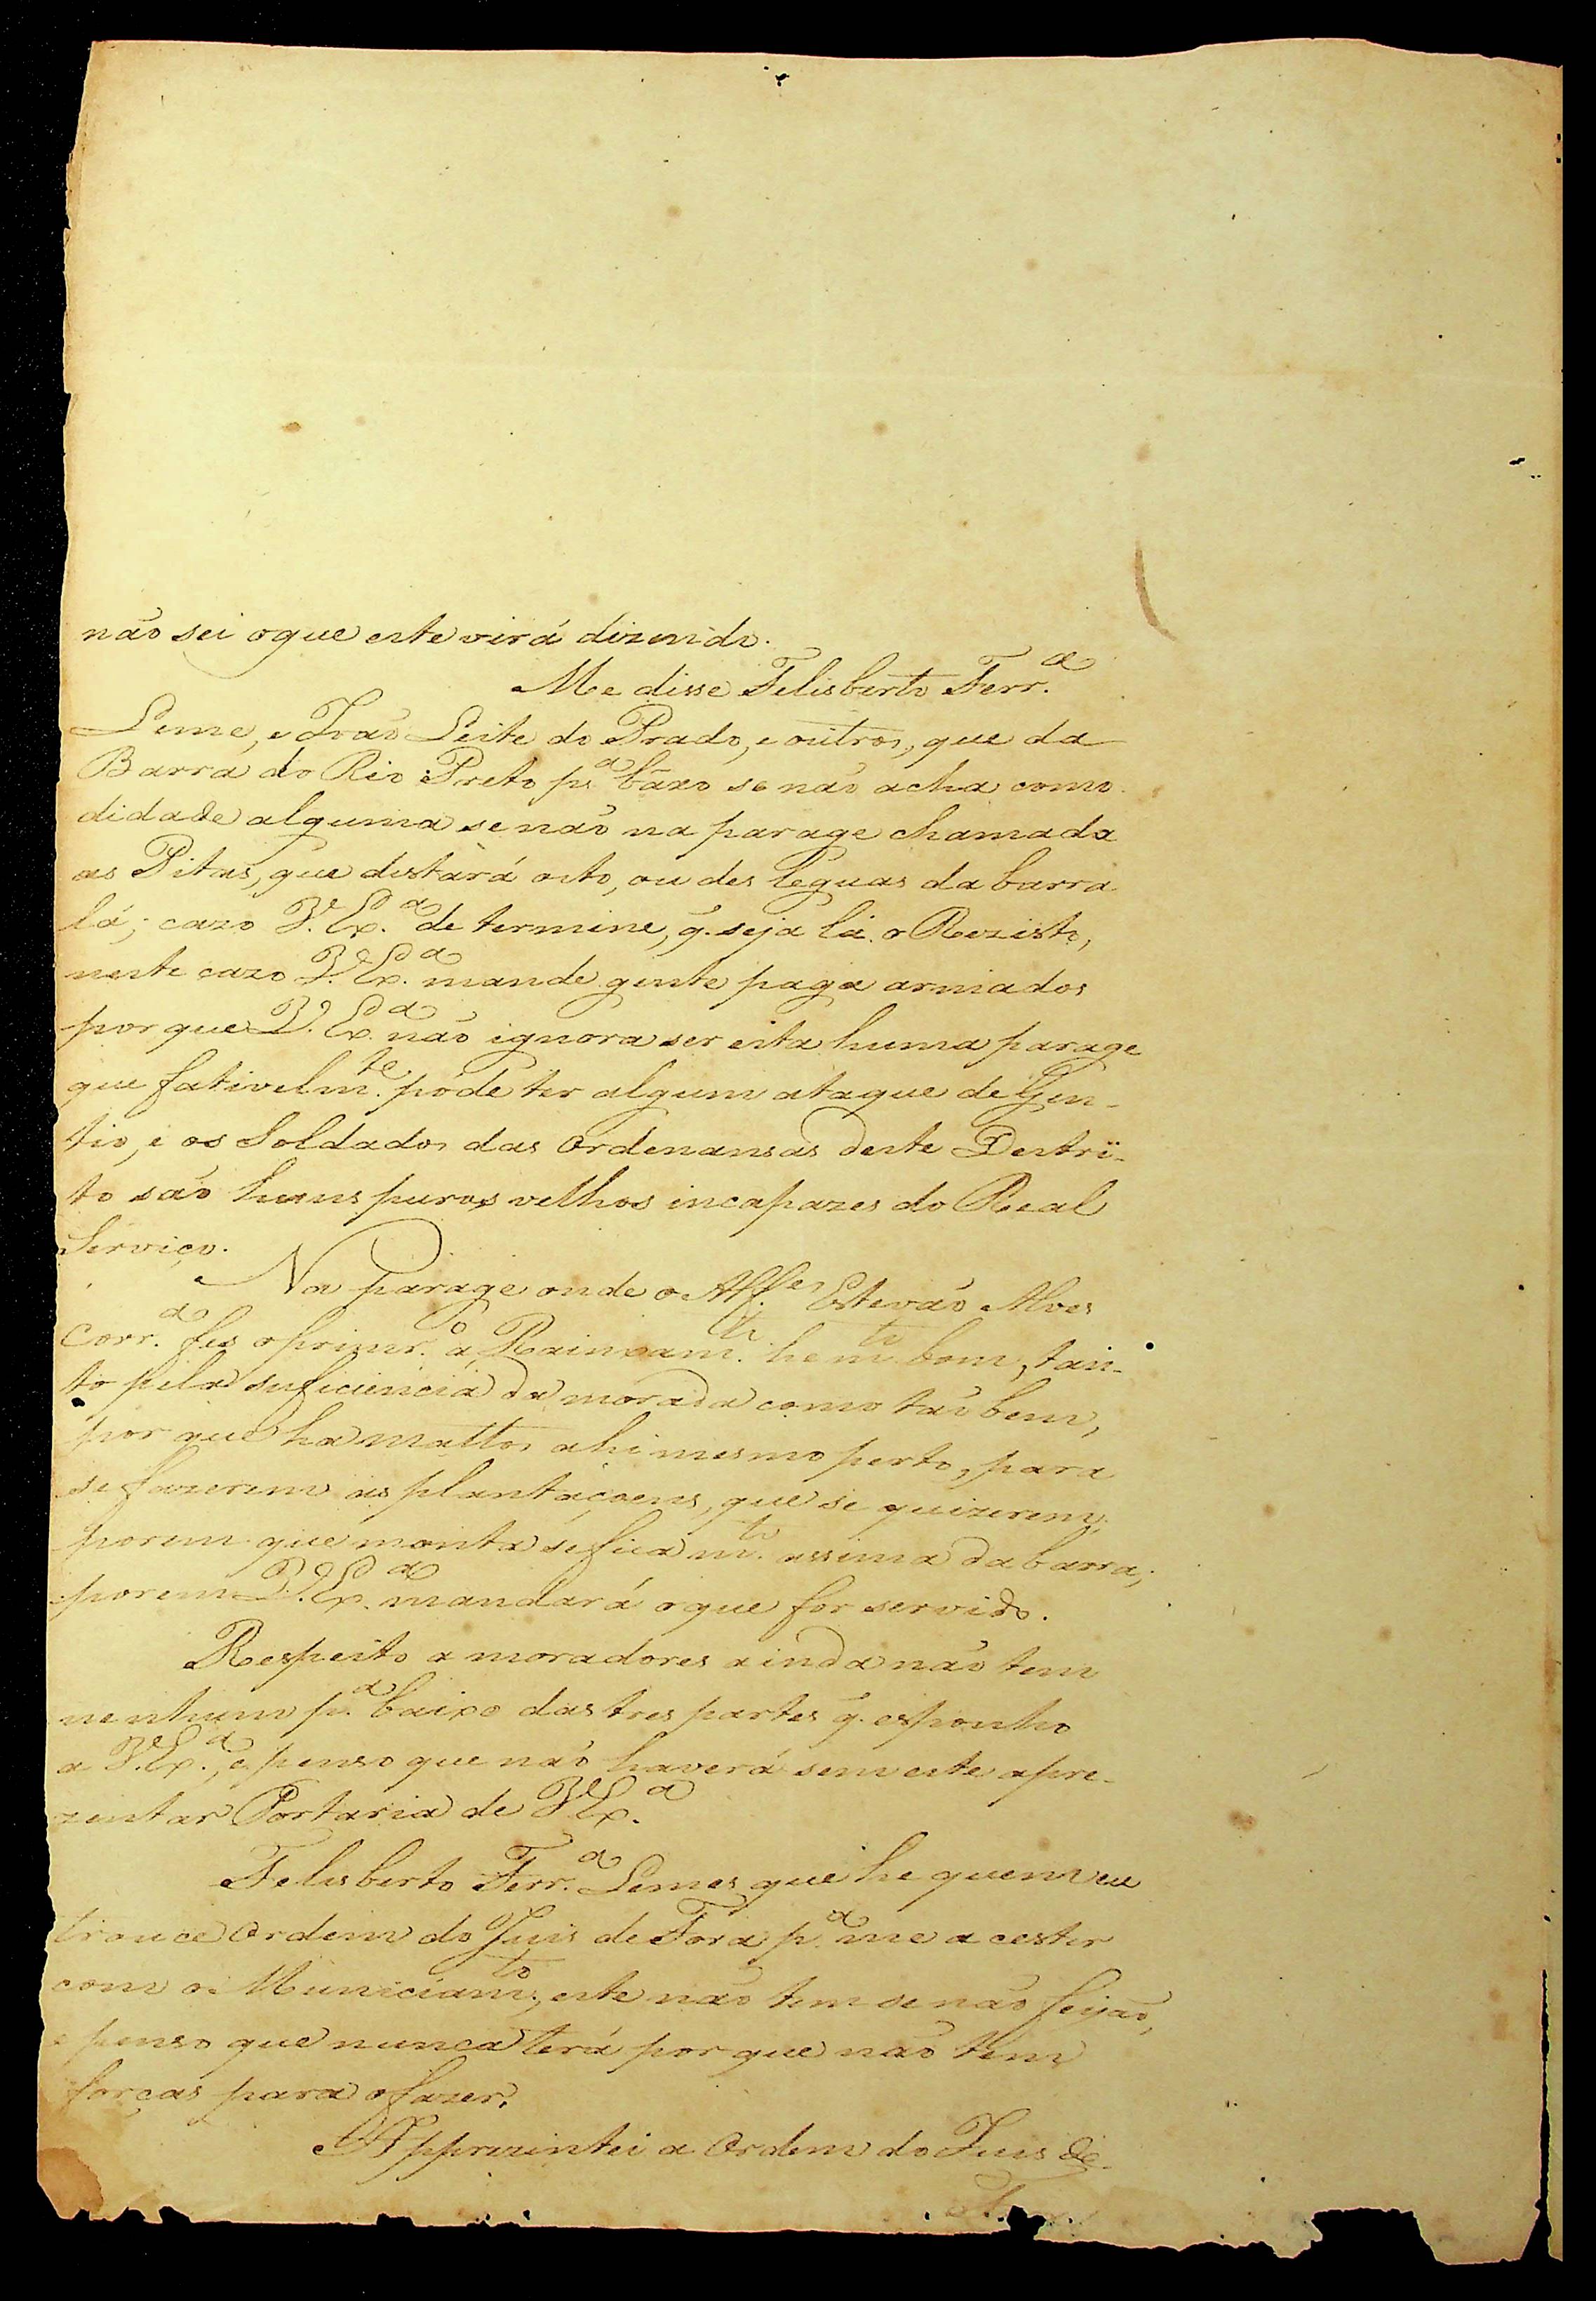 não sei oque este virá dizendo.
Me disse Felisberto Ferr.ª
Leme, e João Leite do Prado, e outros, que da
Barra do Rio Preto p.ª baxo se não acha como
didade alguma senão na parage chamada
as Pitas, que distará oito, ou des leguas da barra
lá; cazo V. Ex.ª de termine, q̃. seja lá o Rezisto,
neste cazo V. Ex.ª mande gente paga armados
por que V. Ex.ª não ignora ser esta huma parage
que fativelm.te póde ter algum ataque de Gen-
tio, e os Soldados das Ordenansas deste Destri-
to são huns puros velhos incapazes do Real
Serviço.
Na parage onde o Alf.es Estevão Alves
Corr.ª fes o primr.º a Rainxam.to he m.to bom, tan-
to pela suficiencia da morada como tão bem,
por que ha mattos ahi mesmo perto, para
se fazerem as plantaçoens, que se quizerem,
porem que monta se fica m.to assima da barra;
porem V. Ex.ª mandará oque for servido.
Respeito a moradores ainda não tem
nenhum p.ª baixo das tres partes q̃. esponho
a V. Ex.ª, e penso que não haverá sem este apre-
zentar Portaria de V. Ex.ª
Felisberto Ferr.ª Lemes que he quem eu
trouce Ordem do Juis de Fora p.ª me a cestir
com o Municiam.to, este não tem se não feijão,
e penso que nunca terá por que não tem
forças para o fazer.
Apprezintei a Ordem do Juis de